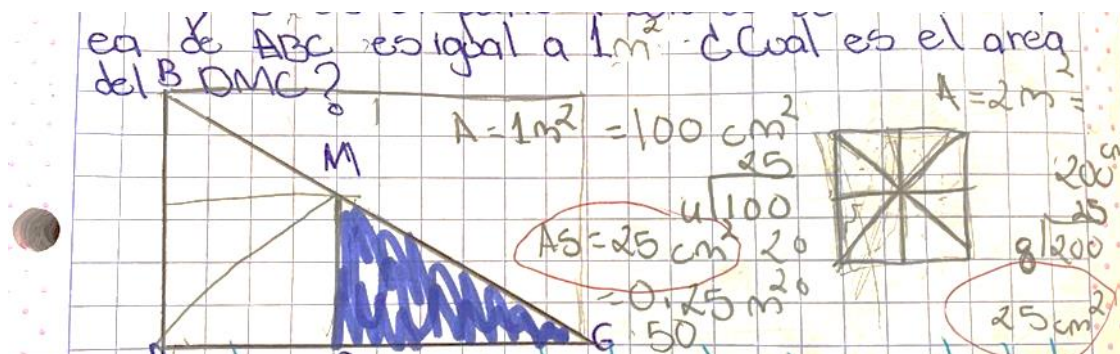 ea de ABC es igual a 1m². ¿Cual es el area
del DMC?
B
1
A=1m² = 100 cm²
A=2m²=
M
25
4|100
20
0
AS=25 cm²
=0.25 m²
50
C
200
25
8|200
25cm²